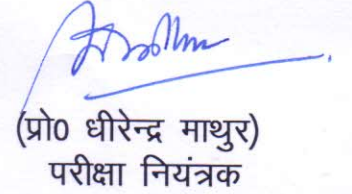 (प्रो0 धीरेन्द्र माथुर)
परीक्षा नियंत्रक